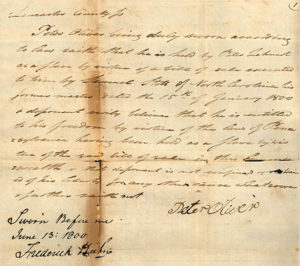 Lancaster County Ss
Peter Oliver being duly sworn according
to law saith that he is held by Peter
as a slave by virtue of a bill of sale executed
to him by Samuel of North Carolina his
former master dated the 15th of January 1800
deponent verily believes that he is entitled
to his freedom by virtue of the laws of Penn
sylvania having been held as a slave by vir
tue of the said bill of sale in this
wealth & that deponent is not confined or
of his liberty for any other cause
further saith not
Peter Oliver
Sworn Before me
June 13: 1800
Frederick